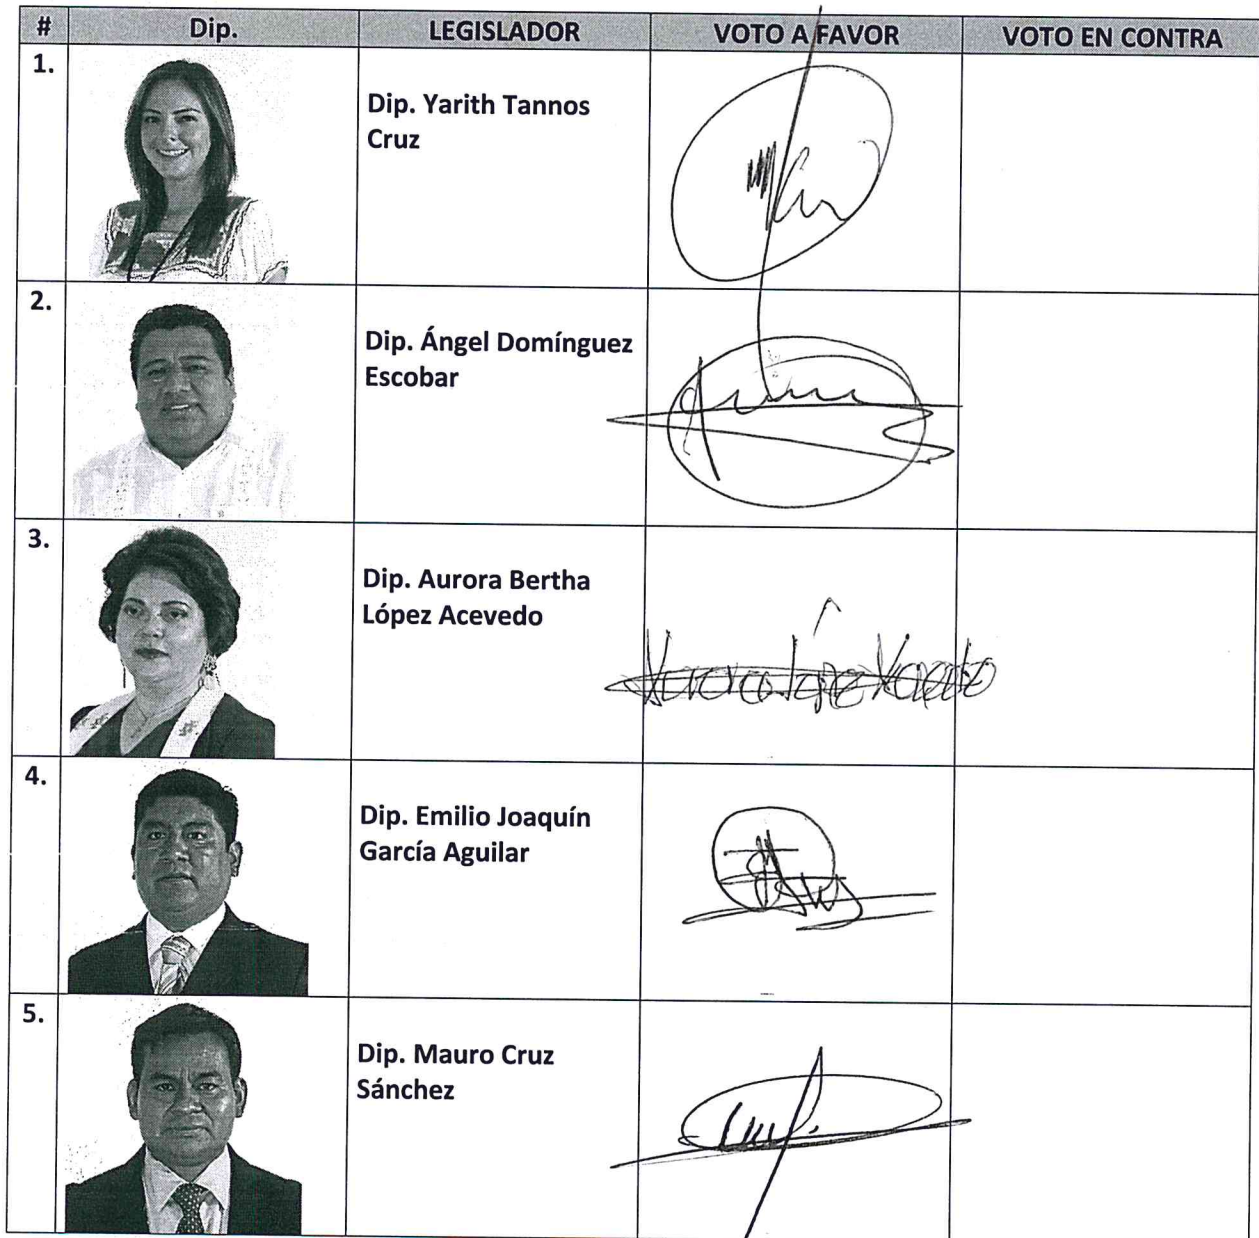 # Dip. LEGISLADOR VOTO A FAVOR VOTO EN CONTRA
1.
Dip. Yarith Tannos
Cruz
2.
Dip. Ángel Domínguez
Escobar
3.
Dip. Aurora Bertha
López Acevedo
Aurora López Acevedo
4.
Dip. Emilio Joaquín
García Aguilar
5.
Dip. Mauro Cruz
Sánchez